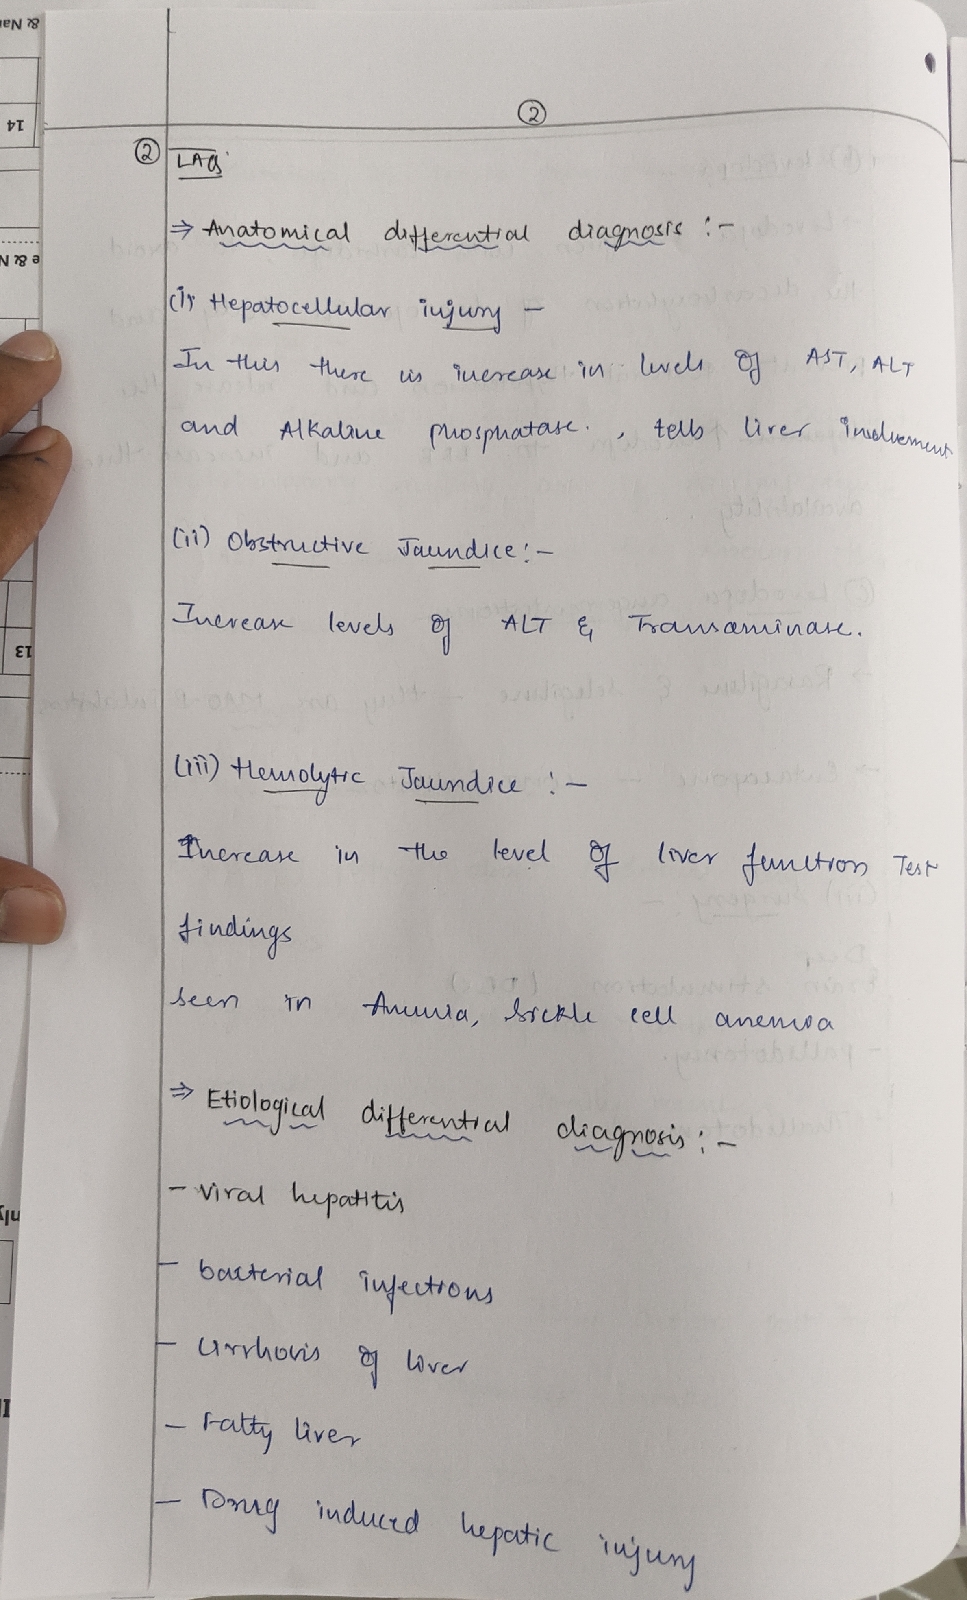 ②
② LAQ
⇒ Anatomical differential diagnosis :-
(i) Hepatocellular injury -
In this there is increase in levels of AST, ALT
and Alkaline phosphatase. , tells liver involvement
(ii) Obstructive Jaundice :-
Increase levels of ALT & Transaminase.
(iii) Hemolytic Jaundice :-
Increase in the level of liver function Test
findings
seen in Anemia, Sickle cell anemia
⇒ Etiological differential diagnosis :-
- Viral hepatitis
- bacterial infections
- Cirrhosis of liver
- Fatty liver
- Drug induced hepatic injury
& Nam
14
13